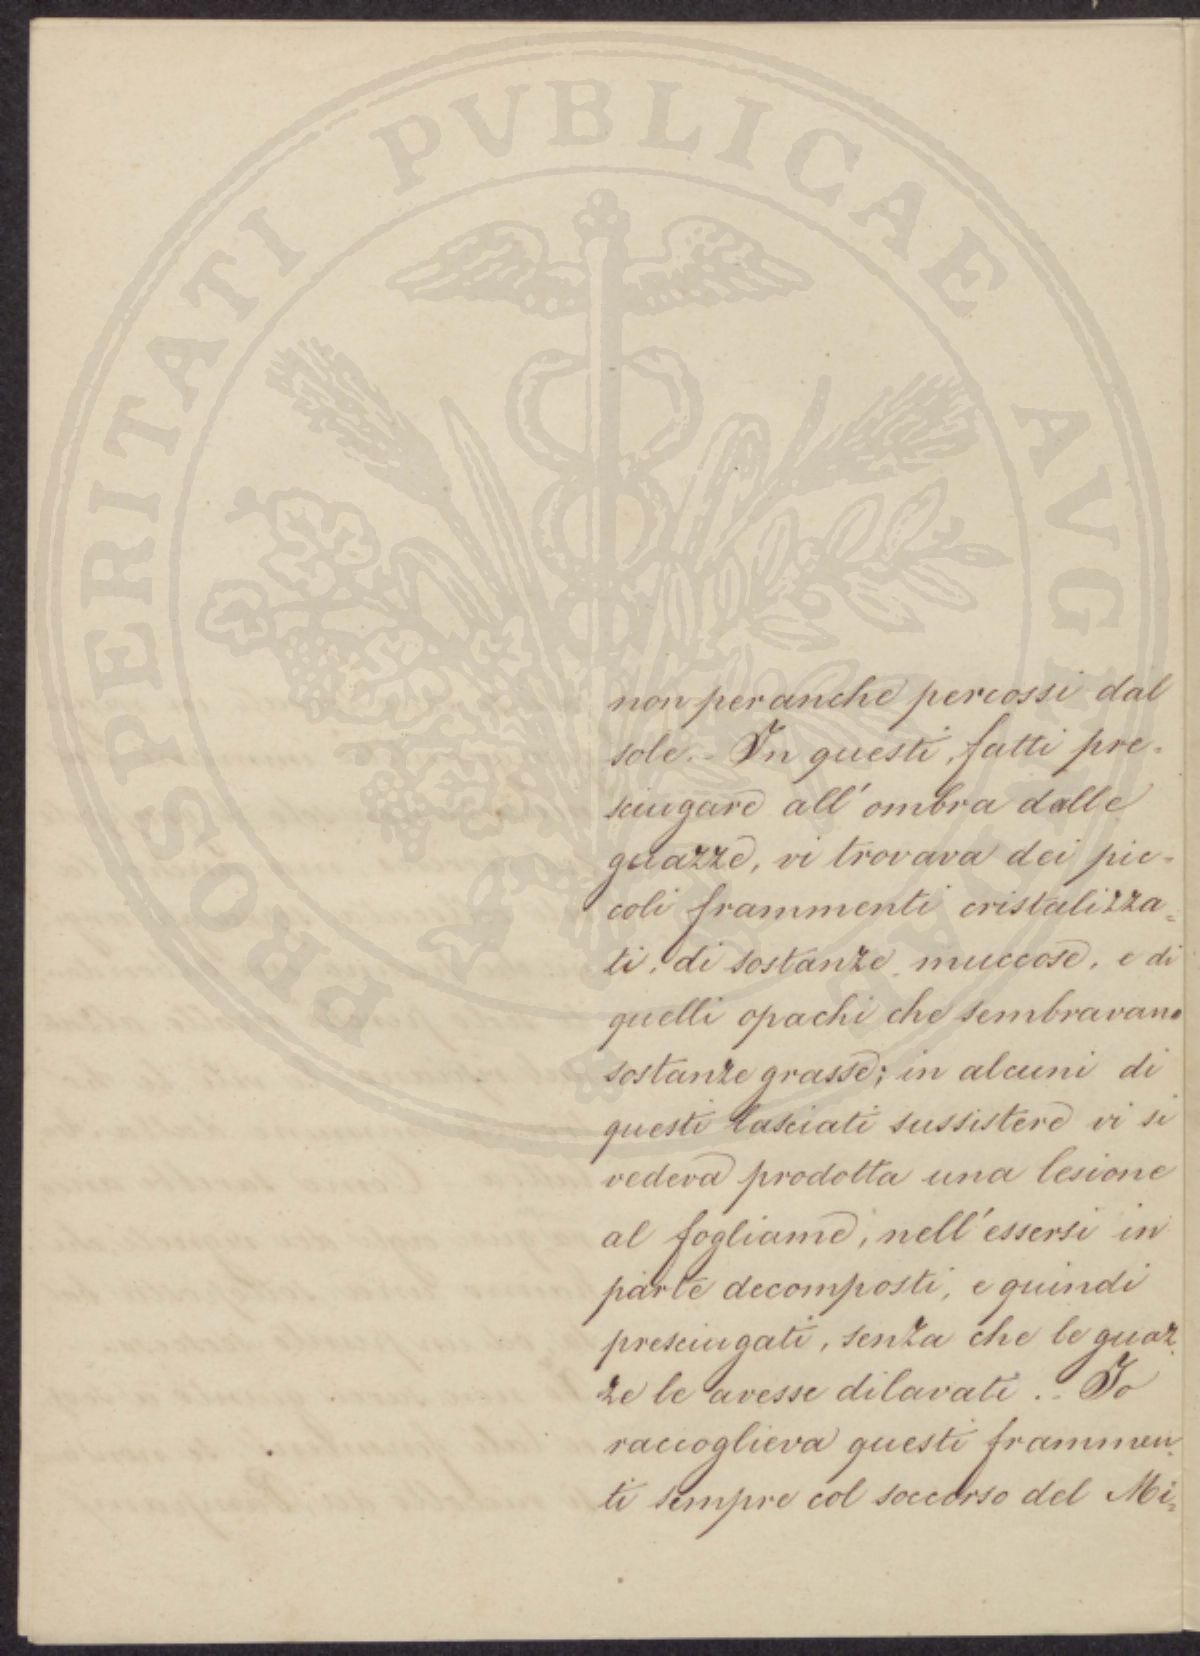 non per anche percossi dal
sole. - In questi, fatti pre=
sciugare all' ombra dalle
guazze, vi trovava dei pic=
coli frammenti cristalizza=
ti, di sostanze muccose, e di
quelli opachi che sembravano
sostanze grasse; in alcuni di
questi lasciati sussistere vi si
vedeva prodotta una lesione
al fogliame, nell' essersi in
parte decomposti, e quindi
presciugati, senza che le guaz=
ze le avesse dilavati. - Io
raccoglieva questi frammen=
ti sempre col soccorso del Mi=
PROSPERITATI PVBLICAE AVGENDAE